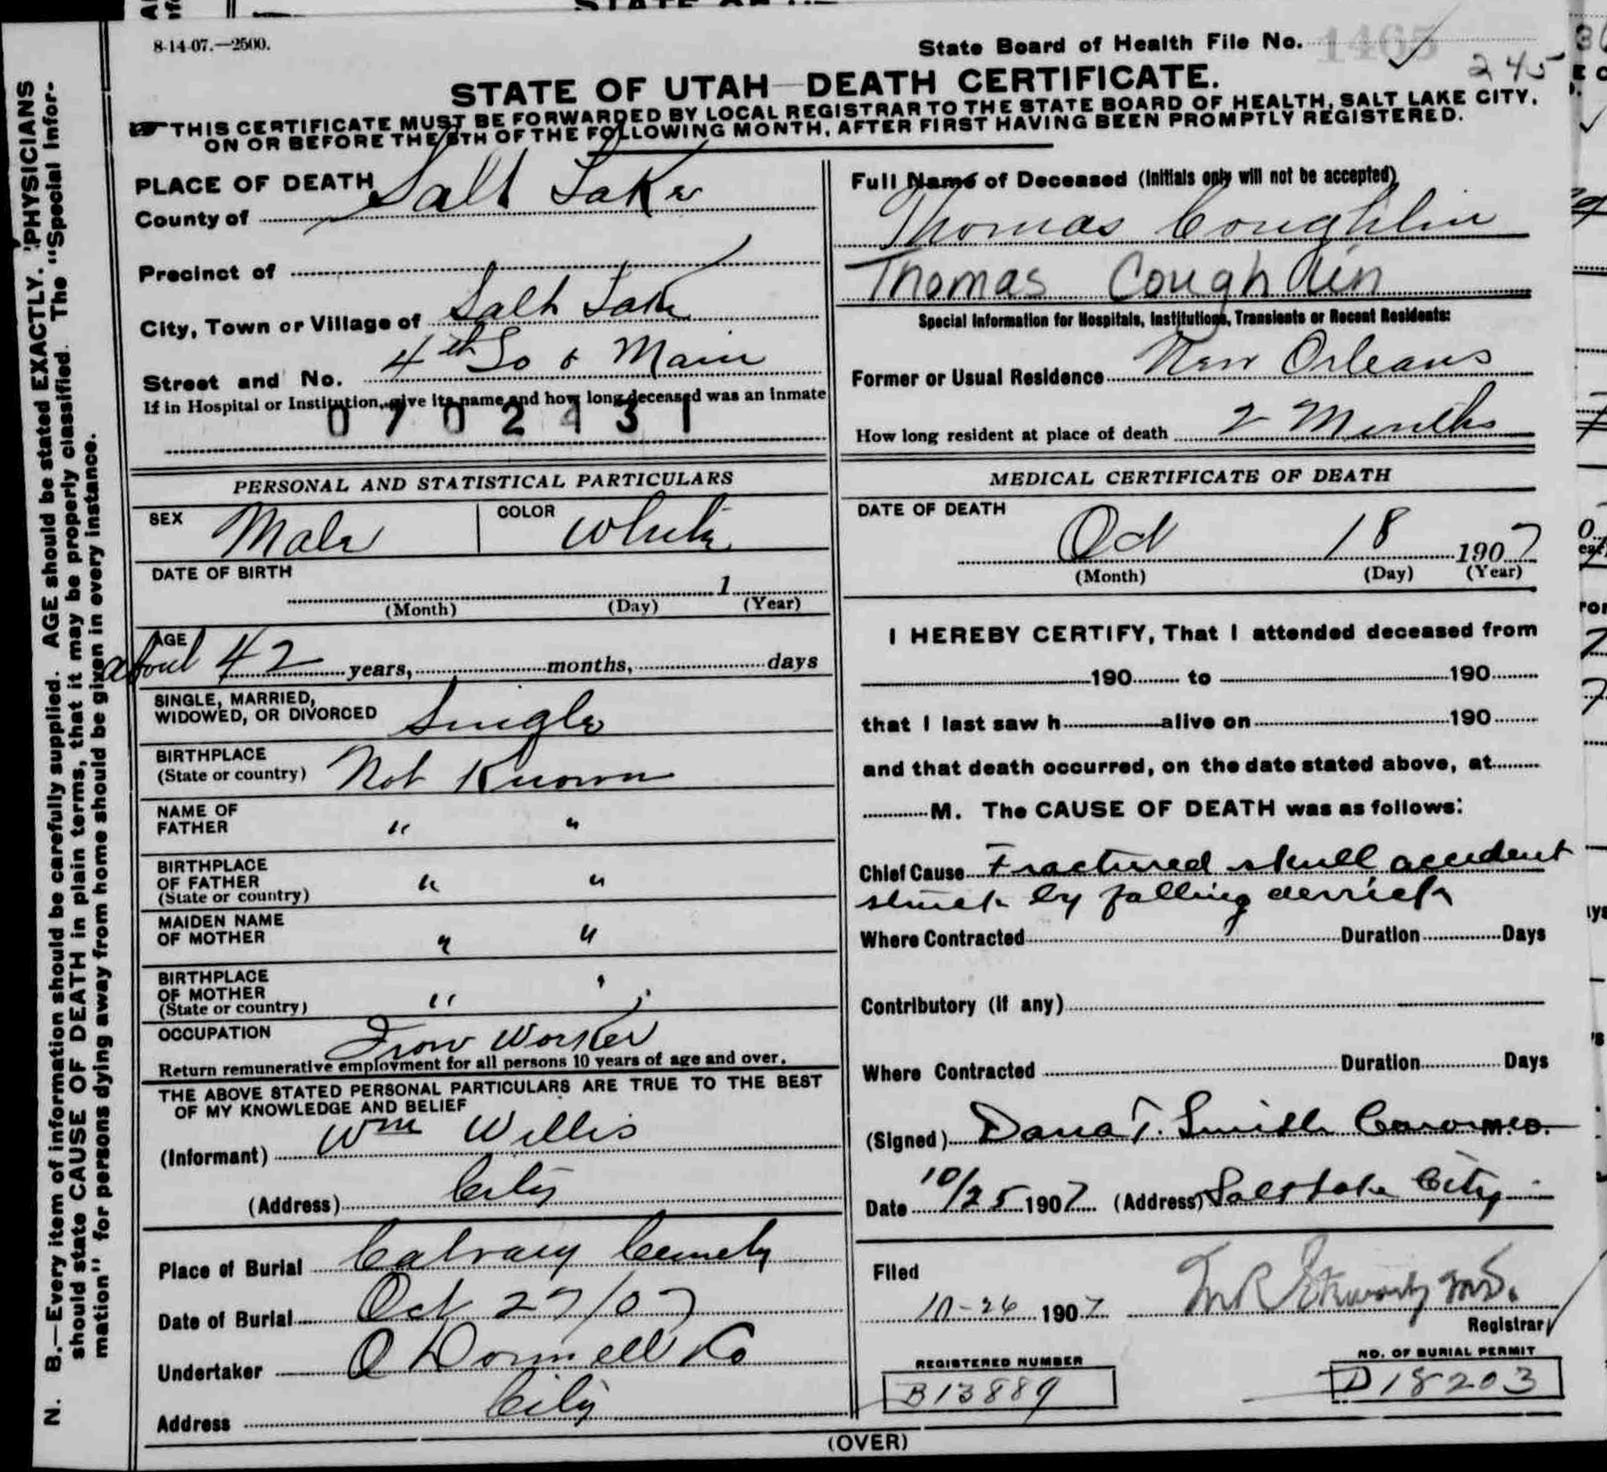 8-14-07.—2500.
State Board of Health File No. 1465
245
STATE OF UTAH—DEATH CERTIFICATE.
THIS CERTIFICATE MUST BE FORWARDED BY LOCAL REGISTRAR TO THE STATE BOARD OF HEALTH, SALT LAKE CITY,
ON OR BEFORE THE 5TH OF THE FOLLOWING MONTH, AFTER FIRST HAVING BEEN PROMPTLY REGISTERED.
PLACE OF DEATH
County of Salt Lake
Precinct of
City, Town or Village of Salt Lake
Street and No. 4th So & Main
If in Hospital or Institution, give its name and how long deceased was an inmate
0702431
Full Name of Deceased (Initials only will not be accepted)
Thomas Coughlin
Thomas Coughlin
Special Information for Hospitals, Institutions, Transients or Recent Residents:
Former or Usual Residence New Orleans
How long resident at place of death 2 Months
PERSONAL AND STATISTICAL PARTICULARS
SEX Male COLOR White
DATE OF BIRTH
1
(Month) (Day) (Year)
AGE
about 42 years, months, days
SINGLE, MARRIED,
WIDOWED, OR DIVORCED Single
BIRTHPLACE
(State or country) Not Known
NAME OF
FATHER " "
BIRTHPLACE
OF FATHER
(State or country) " "
MAIDEN NAME
OF MOTHER " "
BIRTHPLACE
OF MOTHER
(State or country) " "
OCCUPATION Iron Worker
Return remunerative employment for all persons 10 years of age and over.
THE ABOVE STATED PERSONAL PARTICULARS ARE TRUE TO THE BEST
OF MY KNOWLEDGE AND BELIEF
(Informant) Wm Willis
(Address) City
Place of Burial Calvary Cemety
Date of Burial Oct 27/07
Undertaker O Donnell Co
Address City
MEDICAL CERTIFICATE OF DEATH
DATE OF DEATH
Oct 18 1907
(Month) (Day) (Year)
I HEREBY CERTIFY, That I attended deceased from
190 to 190
that I last saw h alive on 190
and that death occurred, on the date stated above, at
M. The CAUSE OF DEATH was as follows:
Chief Cause Fractured skull accident
struck by falling derrick
Where Contracted Duration Days
Contributory (if any)
Where Contracted Duration Days
(Signed) Dana T. Smith Coroner M.D.
Date 10/25 1907 (Address) Salt Lake City
Filed
10-26 1907 M R Stewart M.D.
Registrar
REGISTERED NUMBER
B13889
NO. OF BURIAL PERMIT
D18203
(OVER)
N. B.—Every item of information should be carefully supplied. AGE should be stated EXACTLY. PHYSICIANS
should state CAUSE OF DEATH in plain terms, that it may be properly classified. The "Special Infor-
mation" for persons dying away from home should be given in every instance.